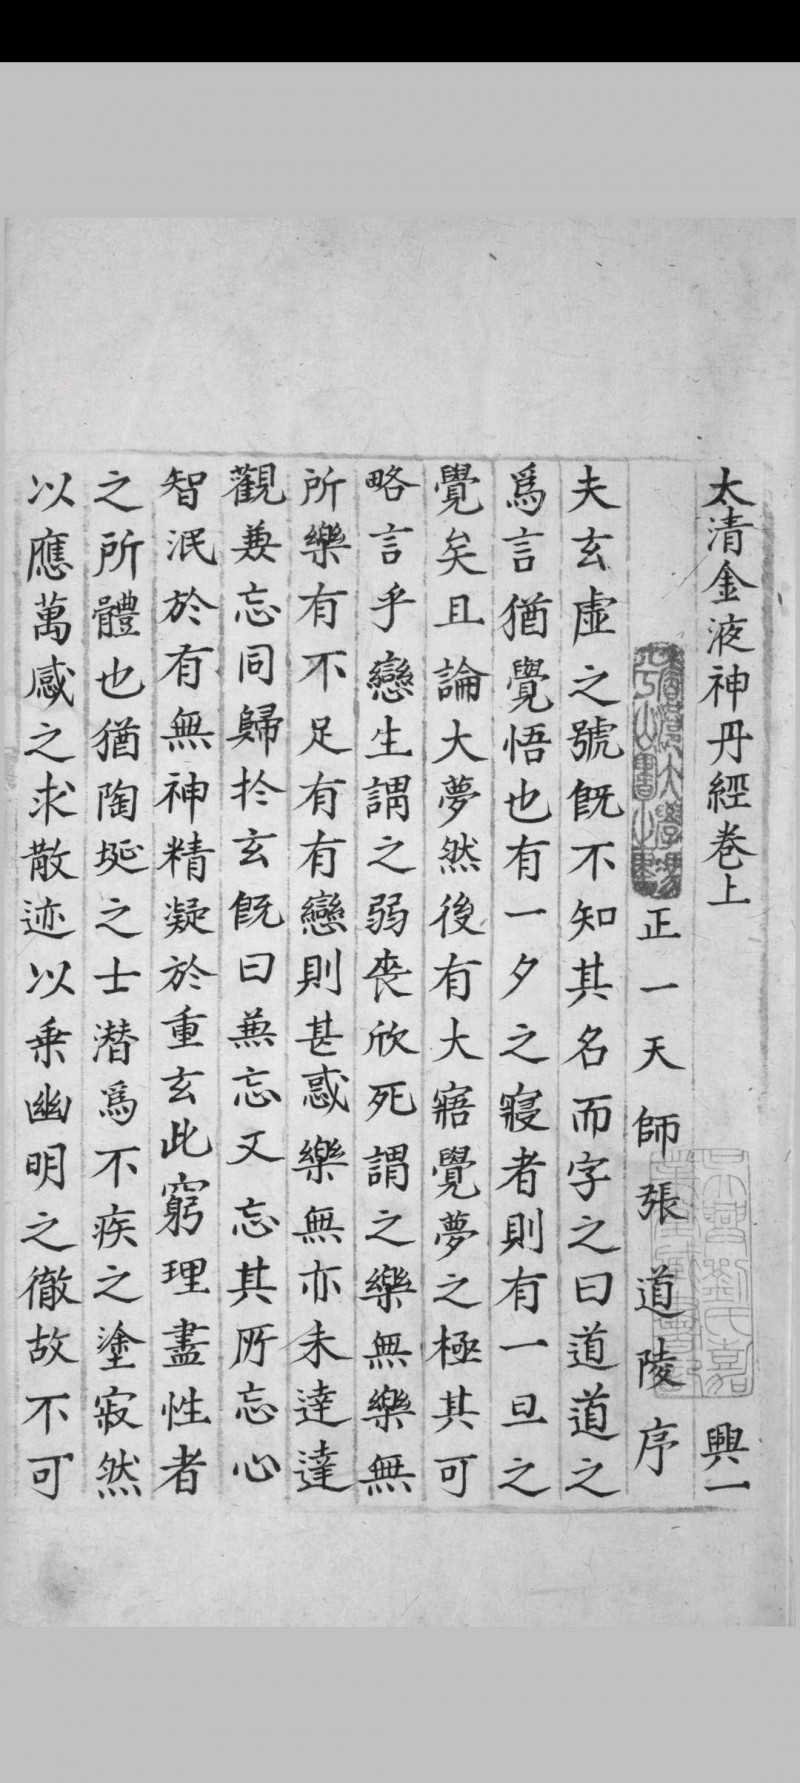 太清金液神丹經卷上 興一
正一天師張道陵序
夫玄虛之號旣不知其名而字之曰道道之
爲言猶覺悟也有一夕之寢者則有一旦之
覺矣且論大夢然後有大寤覺夢之極其可
略言乎戀生謂之弱喪欣死謂之樂無樂無
所樂有不足有有戀則甚惑樂無亦未達達
觀兼忘同歸於玄旣曰兼忘又忘其所忘心
智泯於有無神精凝於重玄此窮理盡性者
之所體也猶陶埏之士潜爲不疾之塗寂然
以應萬感之求散迹以乗幽明之徹故不可